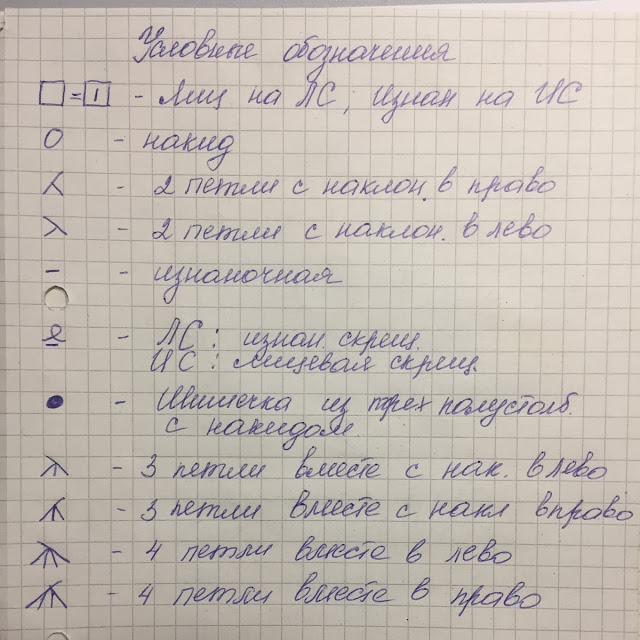 Условные обозначения
□ = I - Лиц на ЛС; Изнан на ИС
O - накид
⋌ - 2 петли с наклон. в право
⋋ - 2 петли с наклон. в лево
– - изнаночная
- ЛС: изнан. скрещ.
ИС: лицевая скрещ.
● - Шишечка из трех полустолб.
с накидом.
- 3 петли вместе с нак. влево
- 3 петли вместе с накл вправо
- 4 петли вместе в лево
- 4 петли вместе в право